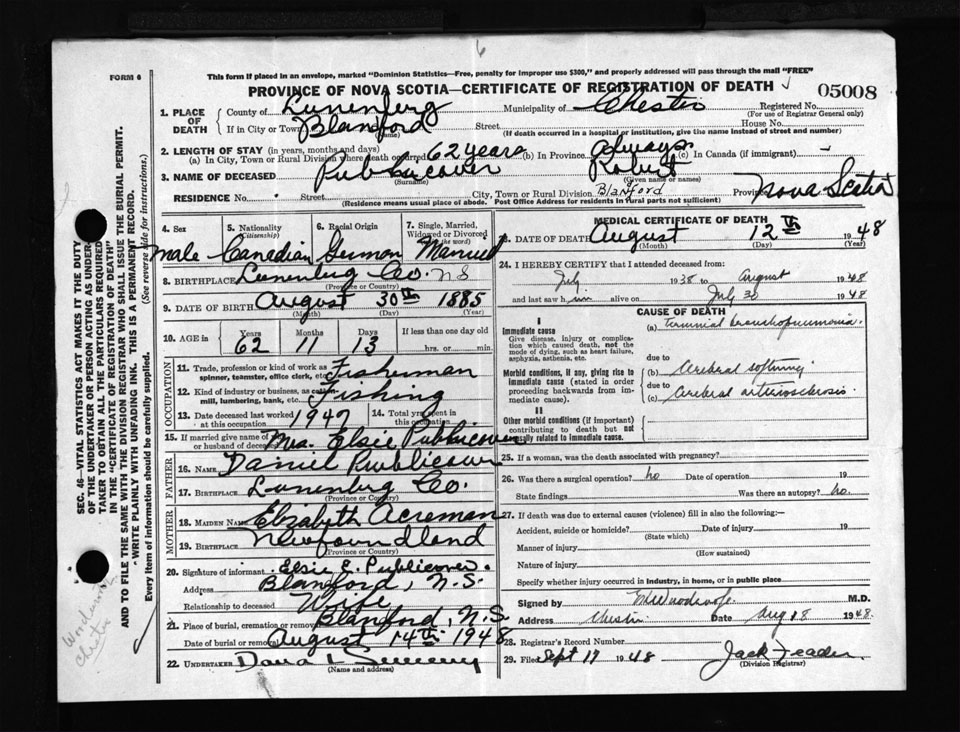 6
FORM 6
This form if placed in an envelope, marked "Dominion Statistics—Free, penalty for improper use $300," and properly addressed will pass through the mail "FREE"
PROVINCE OF NOVA SCOTIA—CERTIFICATE OF REGISTRATION OF DEATH 05008
1. PLACE OF DEATH County of Lunenberg Municipality of Chester Registered No.
(For use of Registrar General only)
If in City or Town Blanford Street House No.
(If death occurred in a hospital or institution, give the name instead of street and number)
2. LENGTH OF STAY (in years, months and days)
(a) In City, Town or Rural Division where death occurred 62 years (b) In Province always (c) In Canada (if immigrant)
3. NAME OF DECEASED Publicover Robert
(Surname) (Given name or names)
RESIDENCE No. Street City, Town or Rural Division Blanford Province Nova Scotia
(Residence means usual place of abode. Post Office Address for residents in rural parts not sufficient)
4. Sex 5. Nationality (Citizenship) 6. Racial Origin 7. Single, Married, Widowed or Divorced (the word)
male Canadian German Married
8. BIRTHPLACE Lunenberg Co. N S
(Province or Country)
9. DATE OF BIRTH August 30th 1885
(Month) (Day) (Year)
10. AGE in Years Months Days If less than one day old
62 11 13 hrs. or min.
OCCUPATION
11. Trade, profession or kind of work as spinner, teamster, office clerk, etc. Fisherman
12. Kind of industry or business, as cotton mill, lumbering, bank, etc. Fishing
13. Date deceased last worked at this occupation 1947 14. Total yrs. spent in this occupation
15. If married give name of wife or husband of deceased Mrs. Elsie Publicover
FATHER
16. NAME Daniel Publicover
17. BIRTHPLACE Lunenberg Co.
(Province or Country)
MOTHER
18. MAIDEN NAME Elizabeth Acreman
19. BIRTHPLACE Newfoundland
(Province or Country)
20. Signature of informant Elsie E. Publicover.
Address Blanford, N.S.
Relationship to deceased Wife
21. Place of burial, cremation or removal Blanford, N.S.
Date of burial or removal August 14th 1948
22. UNDERTAKER Dana L Sweeny
(Name and address)
MEDICAL CERTIFICATE OF DEATH
23. DATE OF DEATH August 12th 1948
(Month) (Day) (Year)
24. I HEREBY CERTIFY that I attended deceased from:
July 1938 to August 1948
and last saw him alive on July 30 1948
CAUSE OF DEATH
I
Immediate cause
Give disease, injury or complication which caused death, not the mode of dying, such as heart failure, asphyxia, asthenia, etc.
(a) terminal bronchopneumonia.
due to
Morbid conditions, if any, giving rise to immediate cause (stated in order proceeding backwards from immediate cause).
(b) cerebral softening
due to
(c) cerebral arteriosclerosis
II
Other morbid conditions (if important) contributing to death but not causally related to immediate cause.
25. If a woman, was the death associated with pregnancy?
26. Was there a surgical operation? no Date of operation 19
State findings Was there an autopsy? no.
27. If death was due to external causes (violence) fill in also the following:—
Accident, suicide or homicide? Date of injury 19
(State which)
Manner of injury
(How sustained)
Nature of injury
Specify whether injury occurred in industry, in home, or in public place
Signed by M.D.
Address Chester Date Aug 18 1948.
28. Registrar's Record Number
29. Filed Sept 19 1948 Jack Feader.
(Division Registrar)
SEC. 46—VITAL STATISTICS ACT MAKES IT THE DUTY
OF THE UNDERTAKER OR PERSON ACTING AS UNDERTAKER TO OBTAIN ALL THE PARTICULARS REQUIRED
IN THE "CERTIFICATE OF REGISTRATION OF DEATH"
AND TO FILE THE SAME WITH THE DIVISION REGISTRAR WHO SHALL ISSUE THE BURIAL PERMIT.
WRITE PLAINLY WITH UNFADING INK. THIS IS A PERMANENT RECORD.
Every item of information should be carefully supplied. (See reverse side for instructions.)
Chester